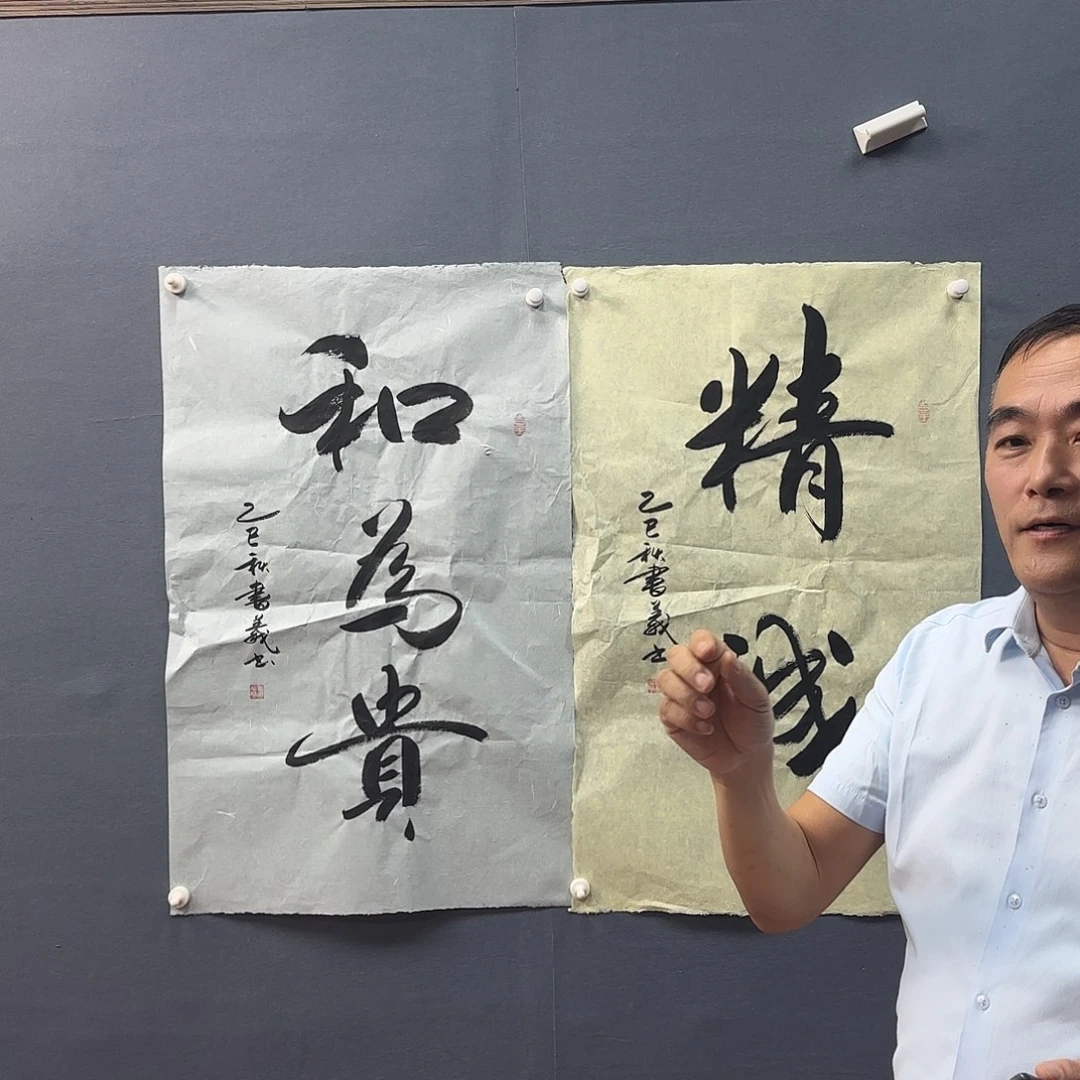 和為貴
乙巳秋書義书
精誠
乙巳秋書義书